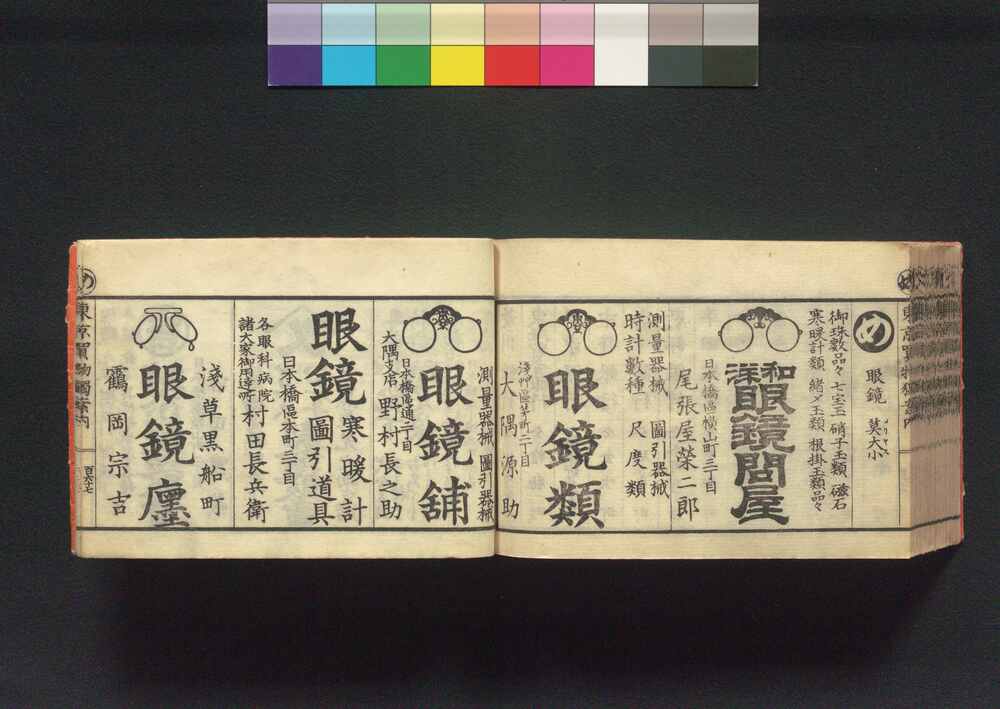 め
眼鏡 莫大小
御珠數品々 七宝玉 硝子玉類 磁石
寒暖計類 緒〆玉類 根掛玉類品々
和洋眼鏡問屋
日本橋區横山町三丁目
尾張屋榮二郎
測量器械 圖引器械
時計數種 尺度類
眼鏡類
淺艸區茅町二丁目
大隅源助
測量器械 圖引器械
眼鏡舗
日本橋區通二丁目
大隅支店 野村長之助
眼鏡
寒暖計
圖引道具
日本橋區本町三丁目
各眼科病院
諸大家御用達所
村田長兵衛
淺草黒船町
眼鏡廛
鶴岡宗吉
め
東京買物獨案内
百六十七